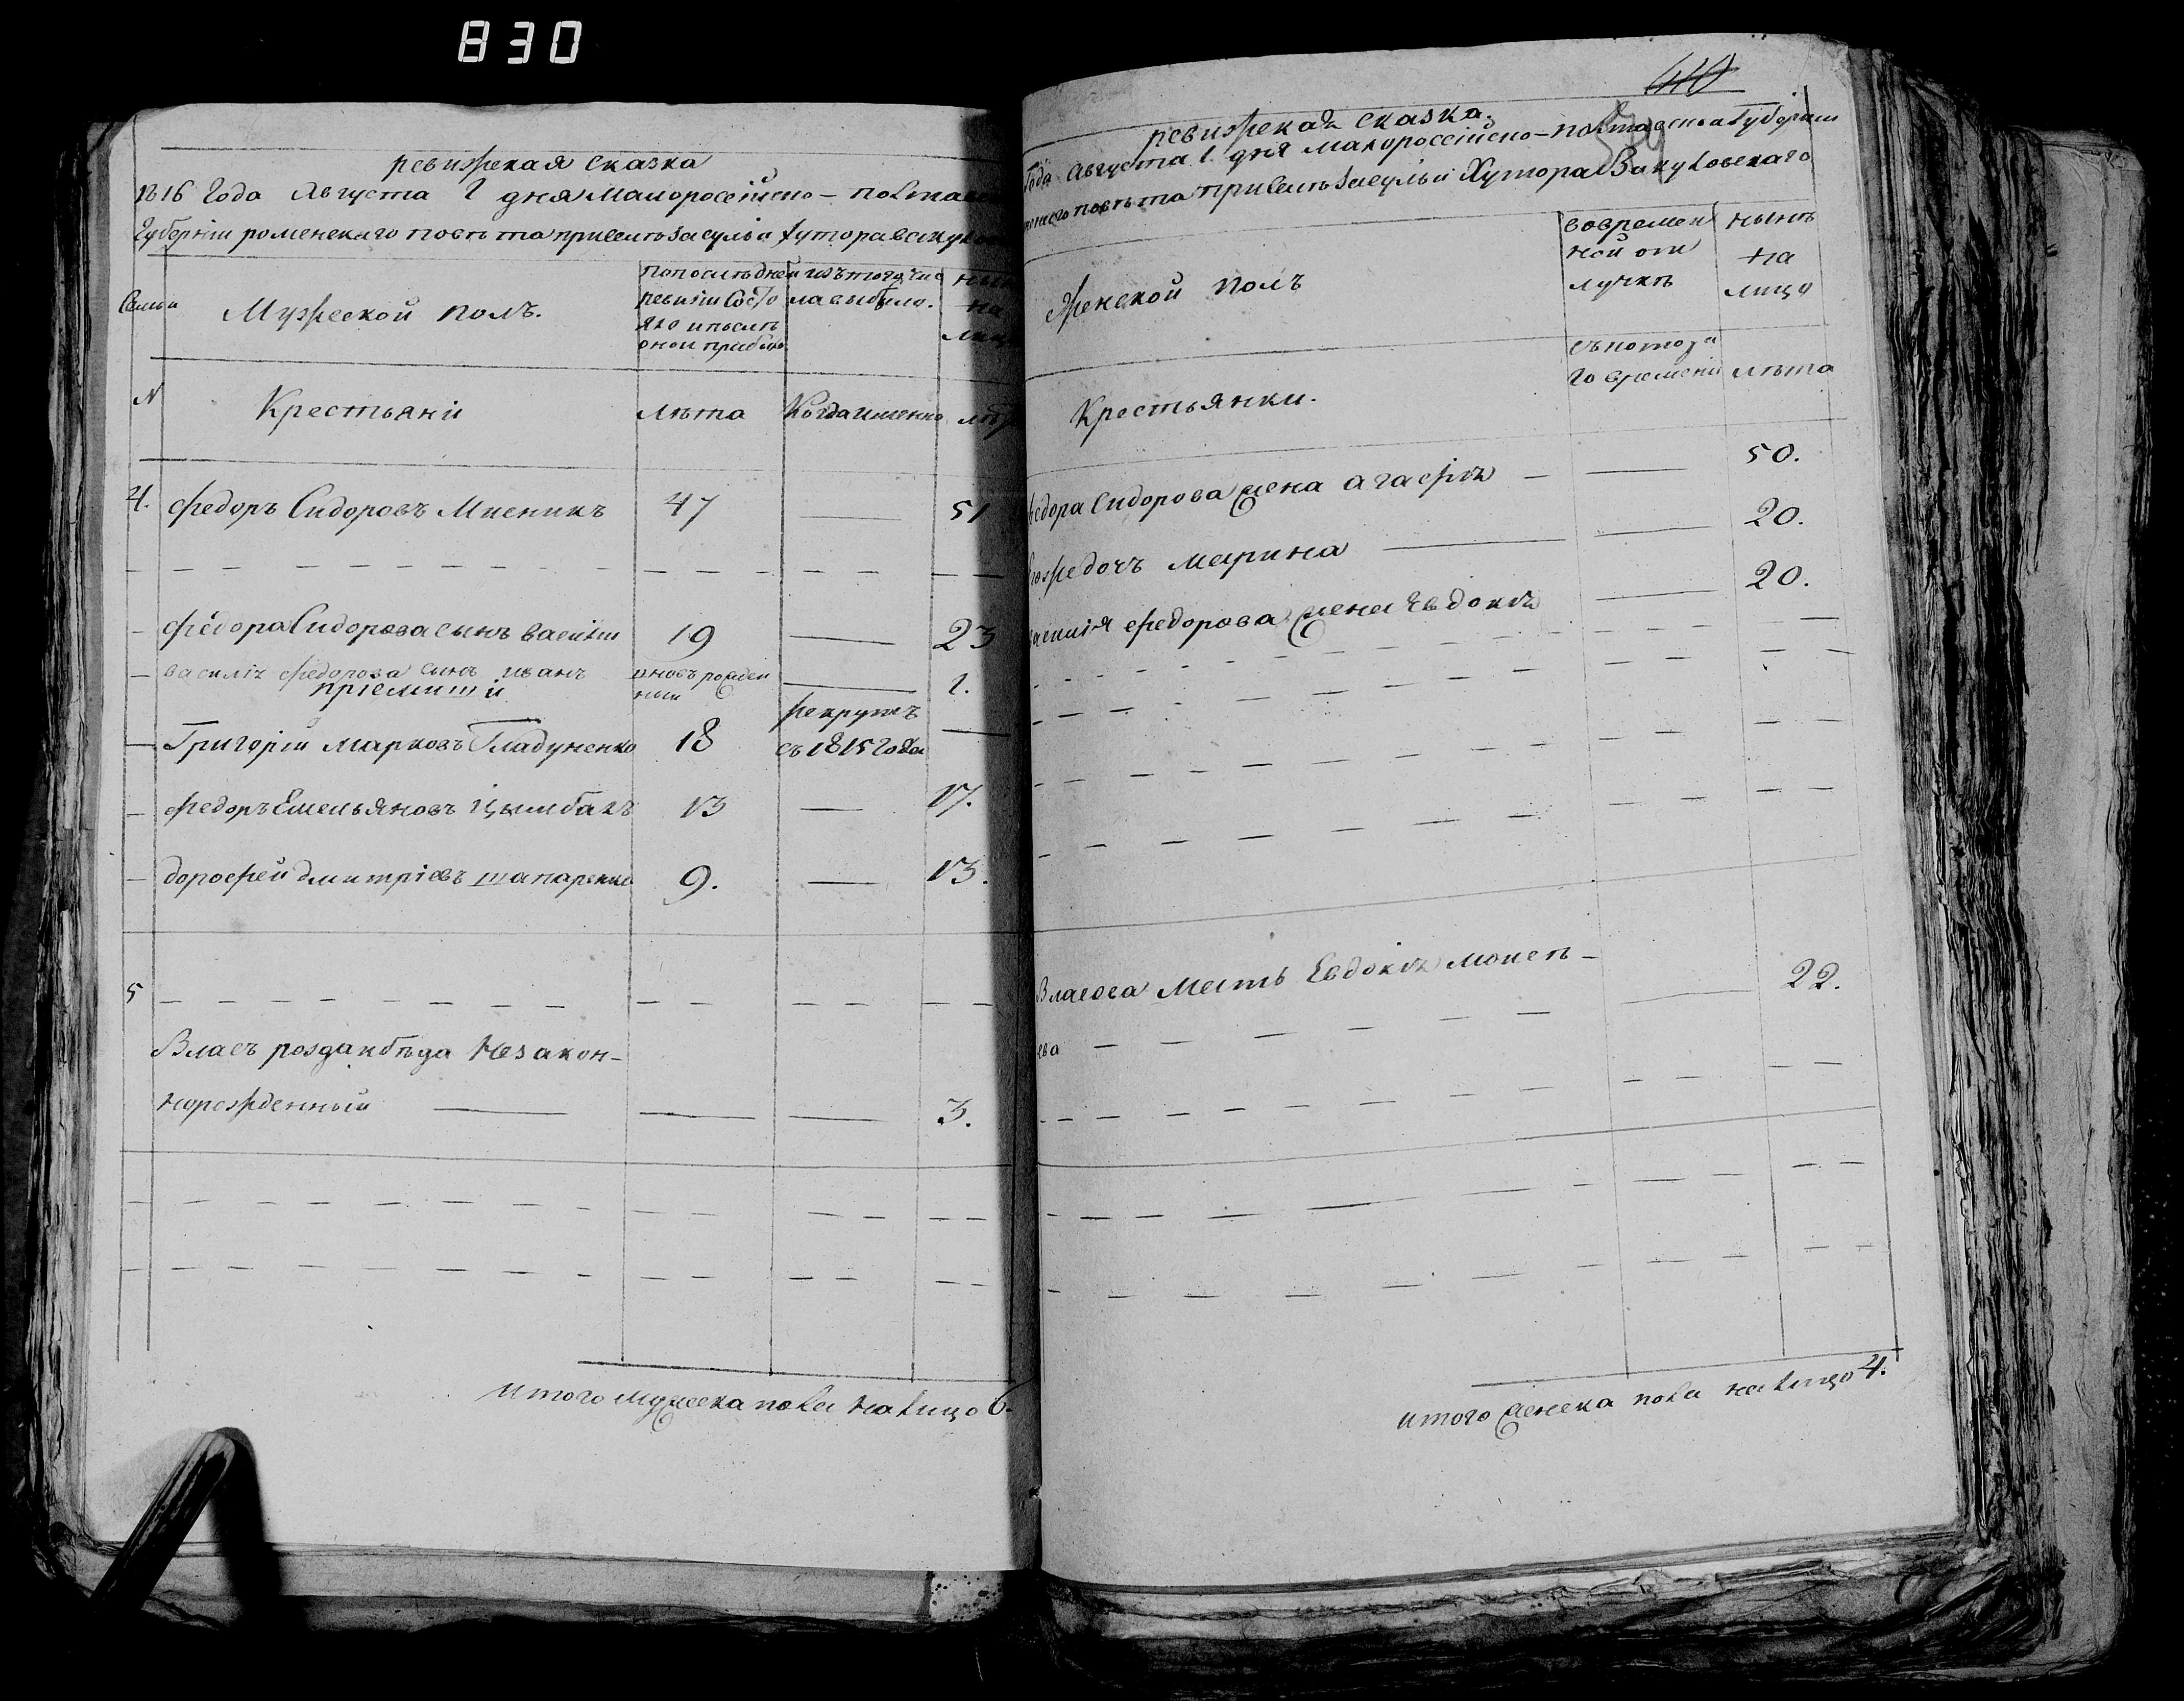 830
ревижская сказка
1816 Года Августа 1 дня Малоросейско – полтавс
Губернии роменского повѣта присель Засулья хутора вакулов
Семьи
Мужеской полъ.
попослѣдней
ревизіи Состо
яло и послѣ
оной прибыло
изътого чис
ла выбыло.
нын
на
лиц
N
Крестьяни
лѣта
Когда именно
лѣт
4. Федоръ Сидоровъ Мисникъ 47 — 51
Федора Сидорова сынъ василий 19 — 23
василія Федорова сынъ иванъ вновь рожден
ный — 1.
пріемиши
Григорій Марковъ Гладуненко 18 рекрутъ
съ 1815 года —
Федоръ Емельяновъ Цымбалъ 13 — 17.
дорофей дмитріевъ шапаренко 9. — 13.
5
Власъ роздайбѣда Незакон–
норожденный — 3.
Итого мужеска пола налицо 6.
410
ревижская сказка.
Года Августа 1 дня малоросейско – полтавская Губерния
менского повѣта присель Засулья Хутора Вакуловского
Женской полъ
вовремен
ной от
лучкѣ
нынѣ
на
лицо
Крестьянки.
съкотора
го времени
лѣта
Федора Сидорова жена агафія — 50.
Егожедочъ марина — 20.
василія федорова жена Евдокія — 20.
Власова Мать Евдокія моисѣ – 22.
ева
итого женска пола налицо 4.